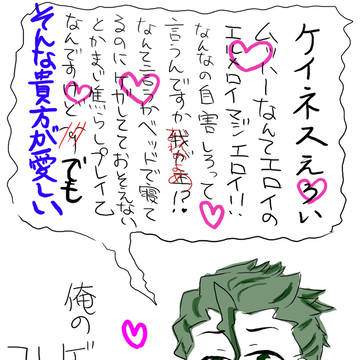 ケイネスえろい
ムッハーなんてエロイの
エルメロイマジエロイ!!
なんなの自害しろって
言うんですか我が主!?
なんて言うかベッドで寝て
るのにケガしてておそえない
とかまじ焦らしプレイ乙
なんですけど でも
そんな貴方が愛しい
俺の